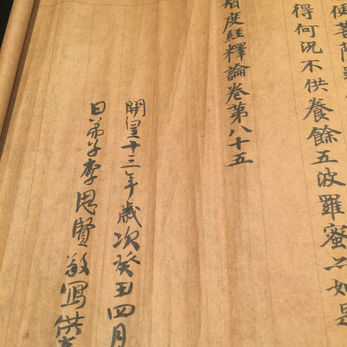 便菩薩
得何況不供養餘五波羅蜜亦如是
度經釋論卷第八十五
開皇十三年歲次癸丑四月
日弟子李思賢敬寫供